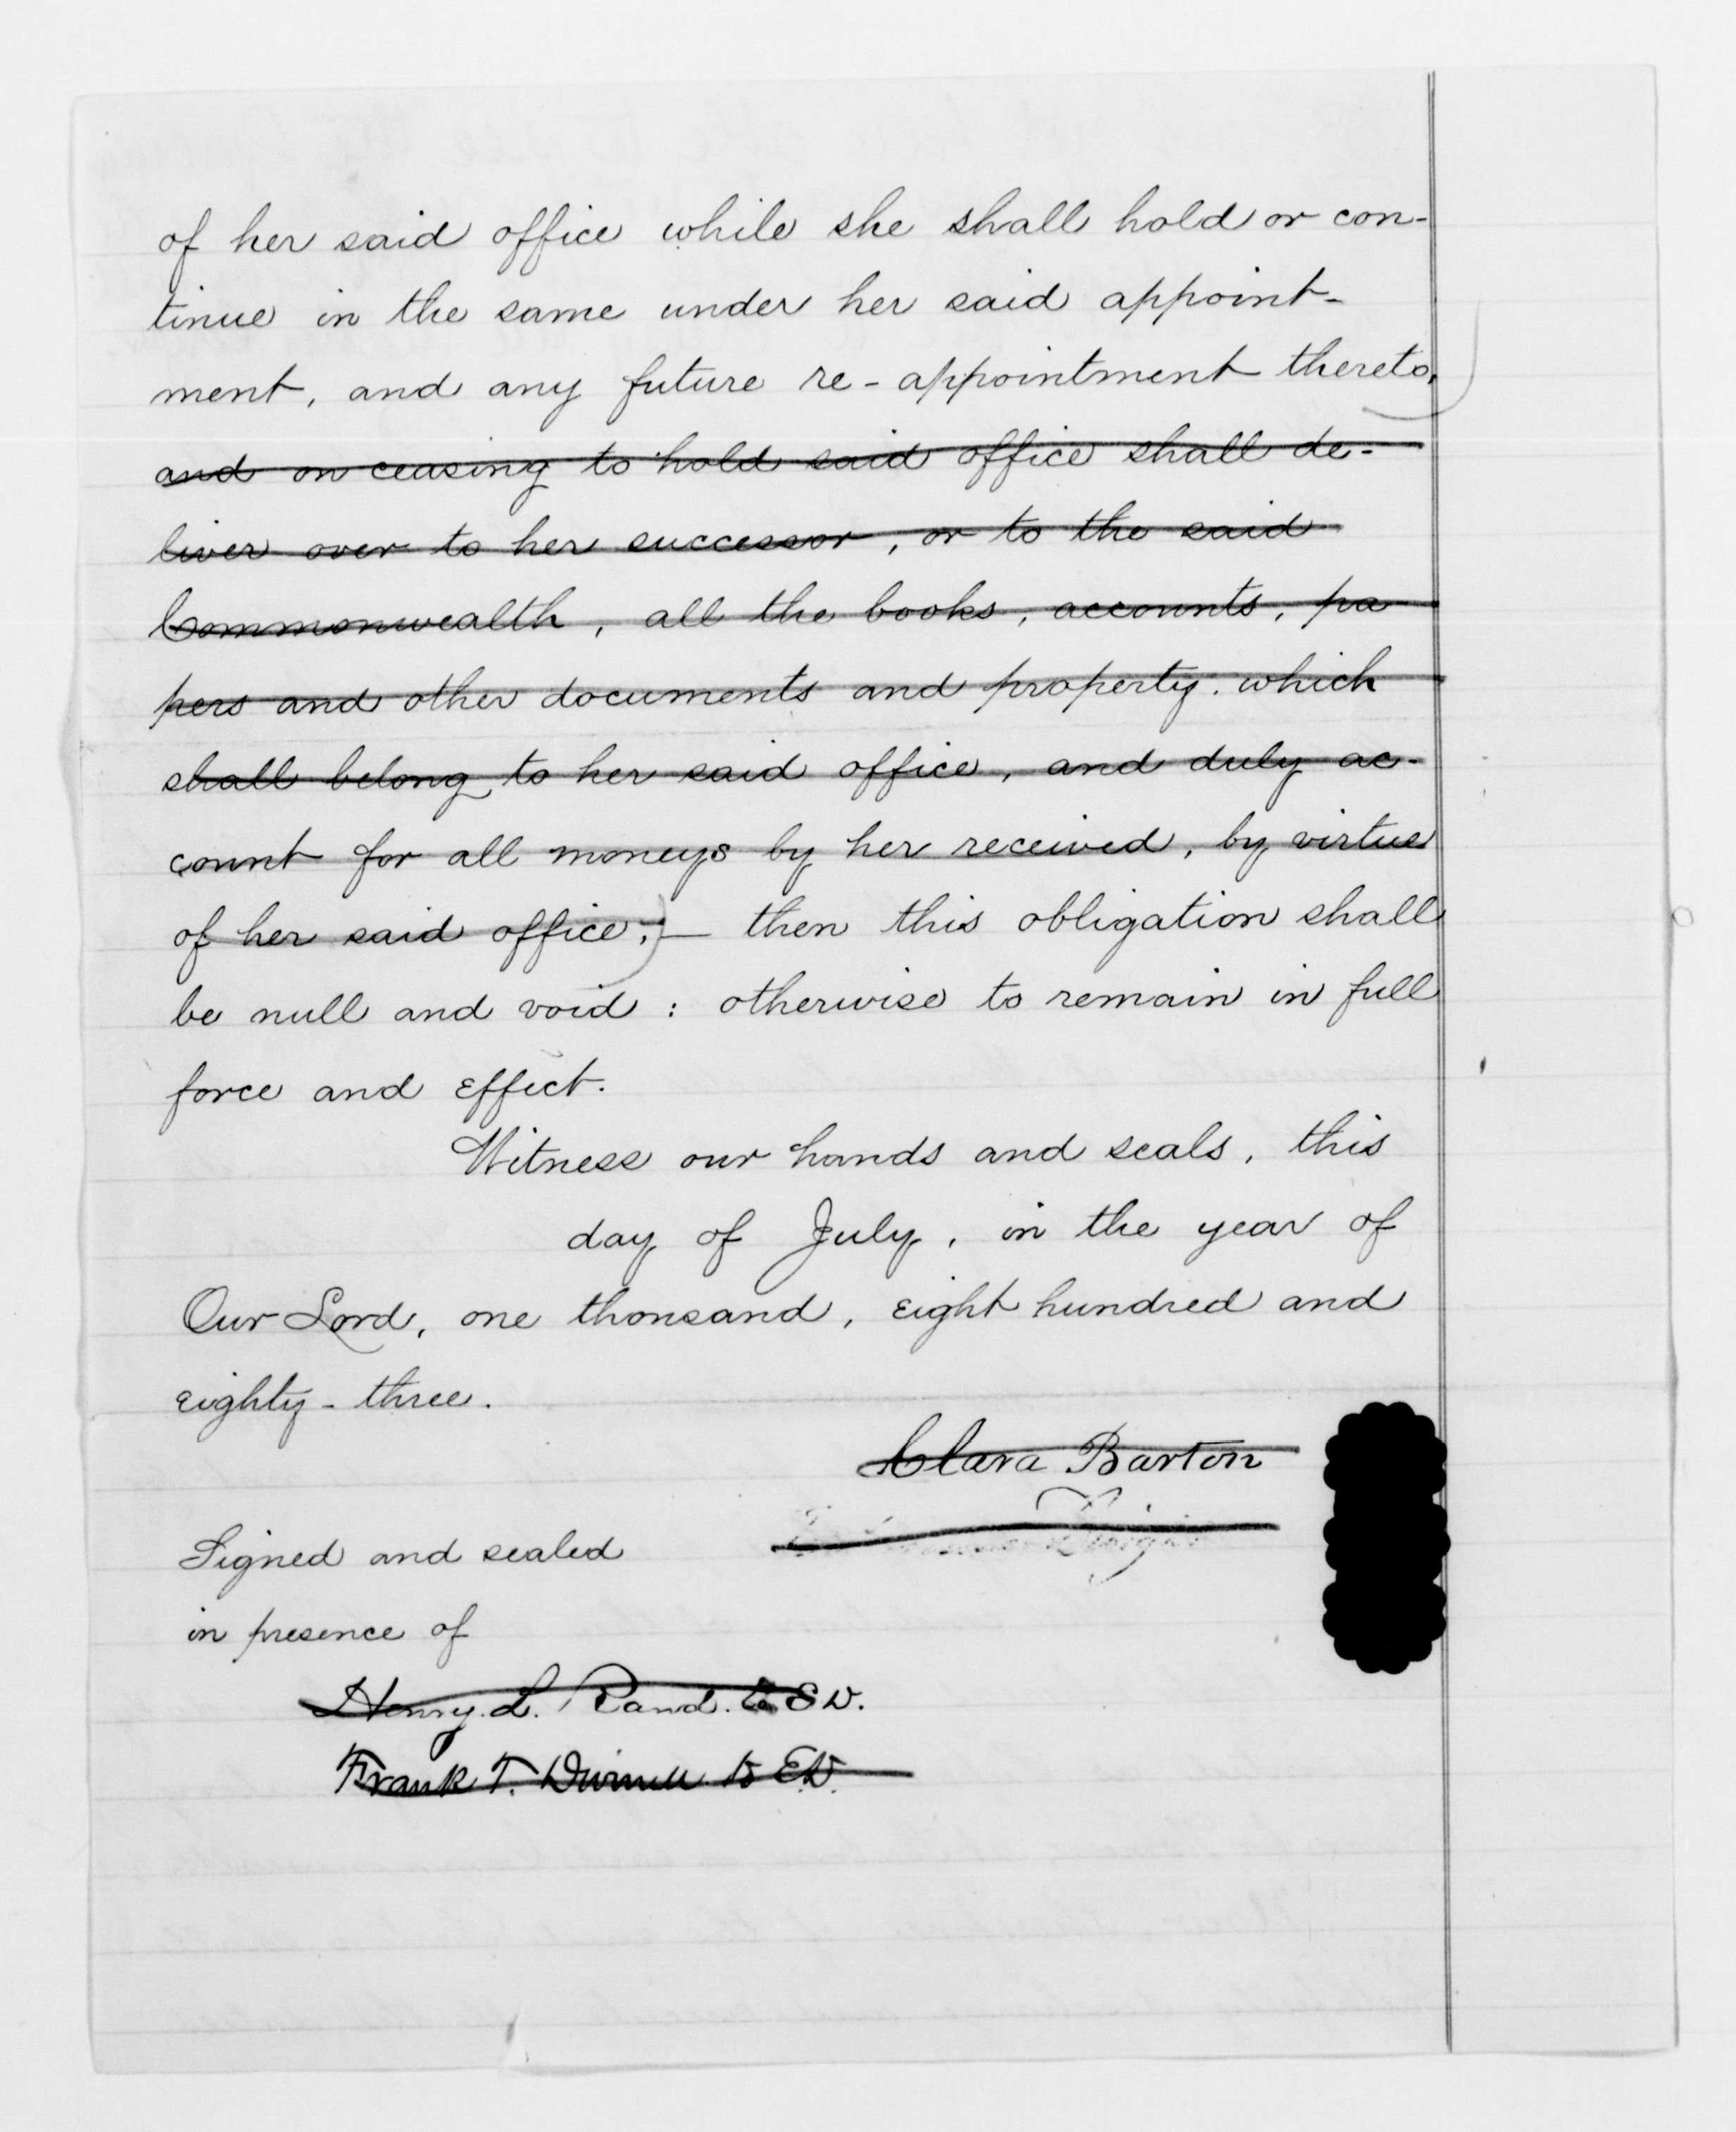 of her said office while she shall hold or con-
tinue in the same under her said appoint-
ment, and any future re-appointment thereto,
and on ceasing to hold said office shall de-
liver over to her successor, or to the said
Commonwealth, all the books, accounts, pa-
pers and other documents and property which
shall belong to her said office, and duly ac-
count for all moneys by her received, by virtue
of her said office;) — then this obligation shall
be null and void : otherwise to remain in full
force and effect.
Witness our hands and seals, this
day of July, in the year of
Our Lord, one thousand, eight hundred and
eighty-three.
Clara Barton
Signed and sealed
in presence of
Henry L. Rand. to E D.
Frank T. to E.D.